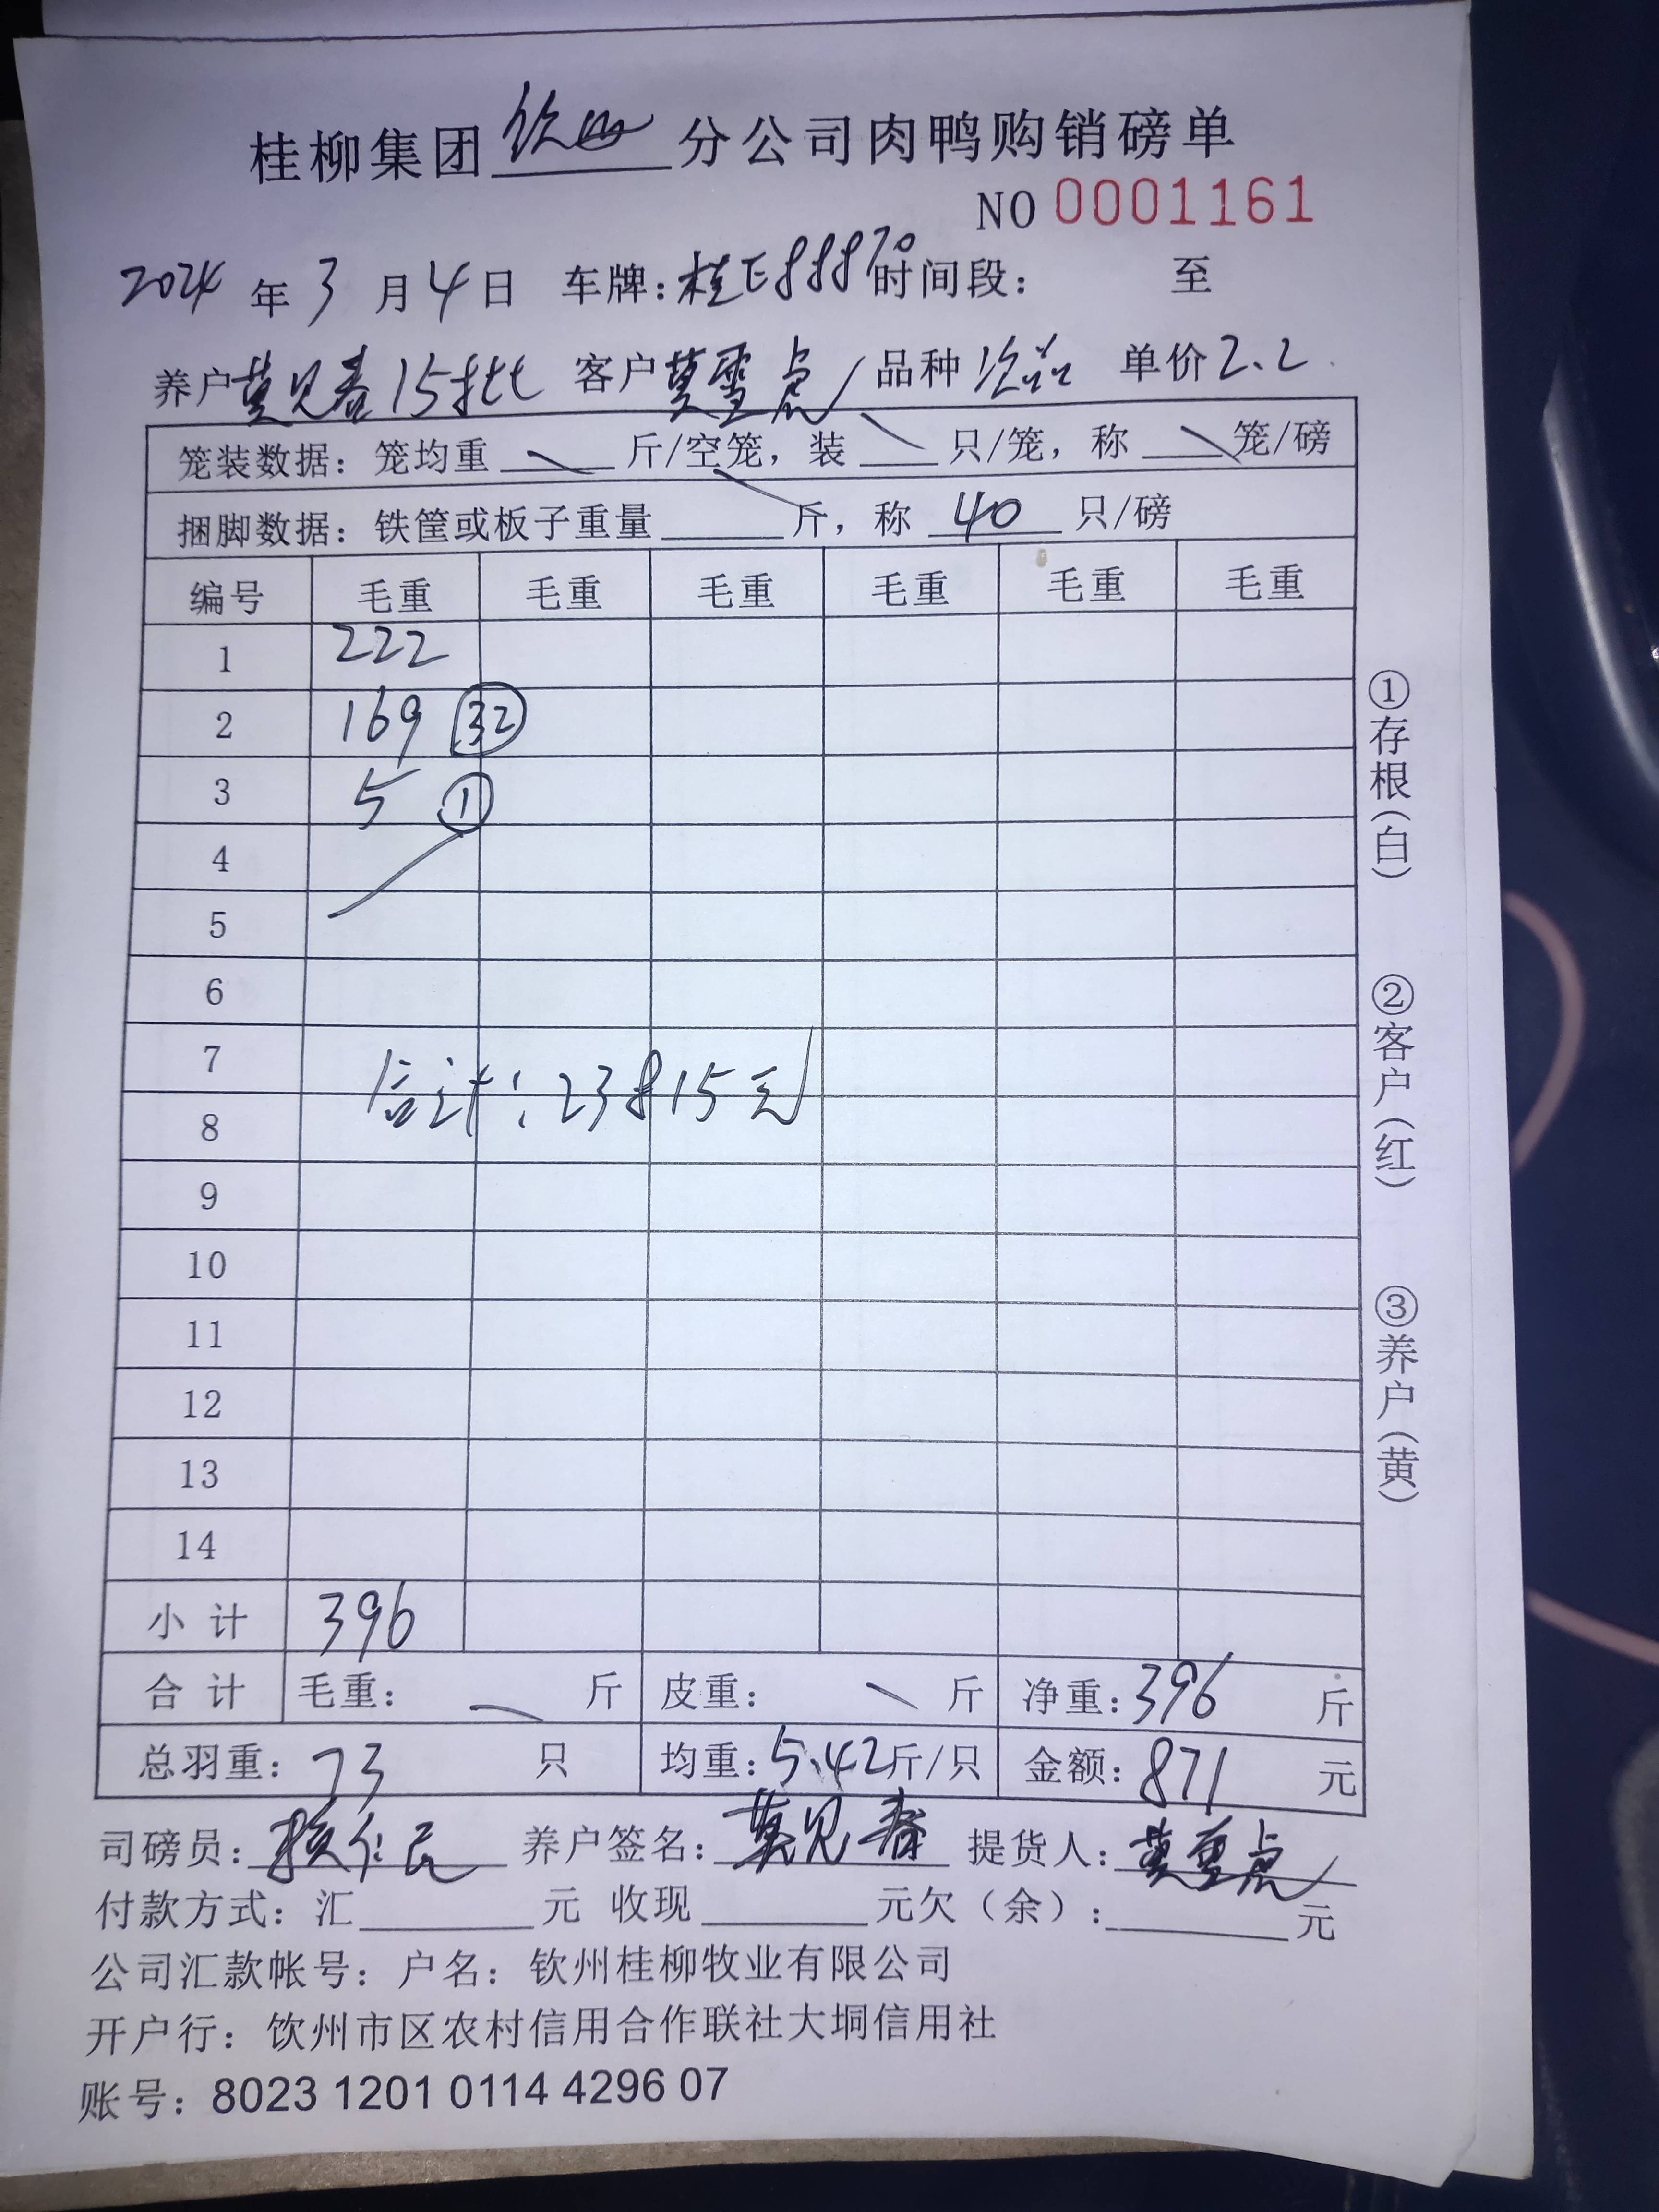 桂柳集团钦州分公司肉鸭购销磅单
NO 0001161
2024年3月4日 车牌:桂E88870时间段: 至
养户莫见春15批 客户莫雪 品种次品 单价2.2
笼装数据:笼均重 斤/空笼,装 只/笼,称 笼/磅
捆脚数据:铁筐或板子重量 斤,称 40 只/磅
编号 毛重 毛重 毛重 毛重 毛重 毛重
1 222
2 169 32
3 5 1
4
5
6
7
合计:23815元
8
9
10
11
12
13
14
小计 396
合计 毛重: 斤 皮重: 斤 净重:396 斤
总羽重:73 只 均重:5.42斤/只 金额:871 元
司磅员: 养户签名:莫见春 提货人:莫雪
付款方式:汇 元 收现 元欠(余): 元
公司汇款帐号:户名:钦州桂柳牧业有限公司
开户行:钦州市区农村信用合作联社大垌信用社
账号:8023 1201 0114 4296 07
①存根(白) ②客户(红) ③养户(黄)